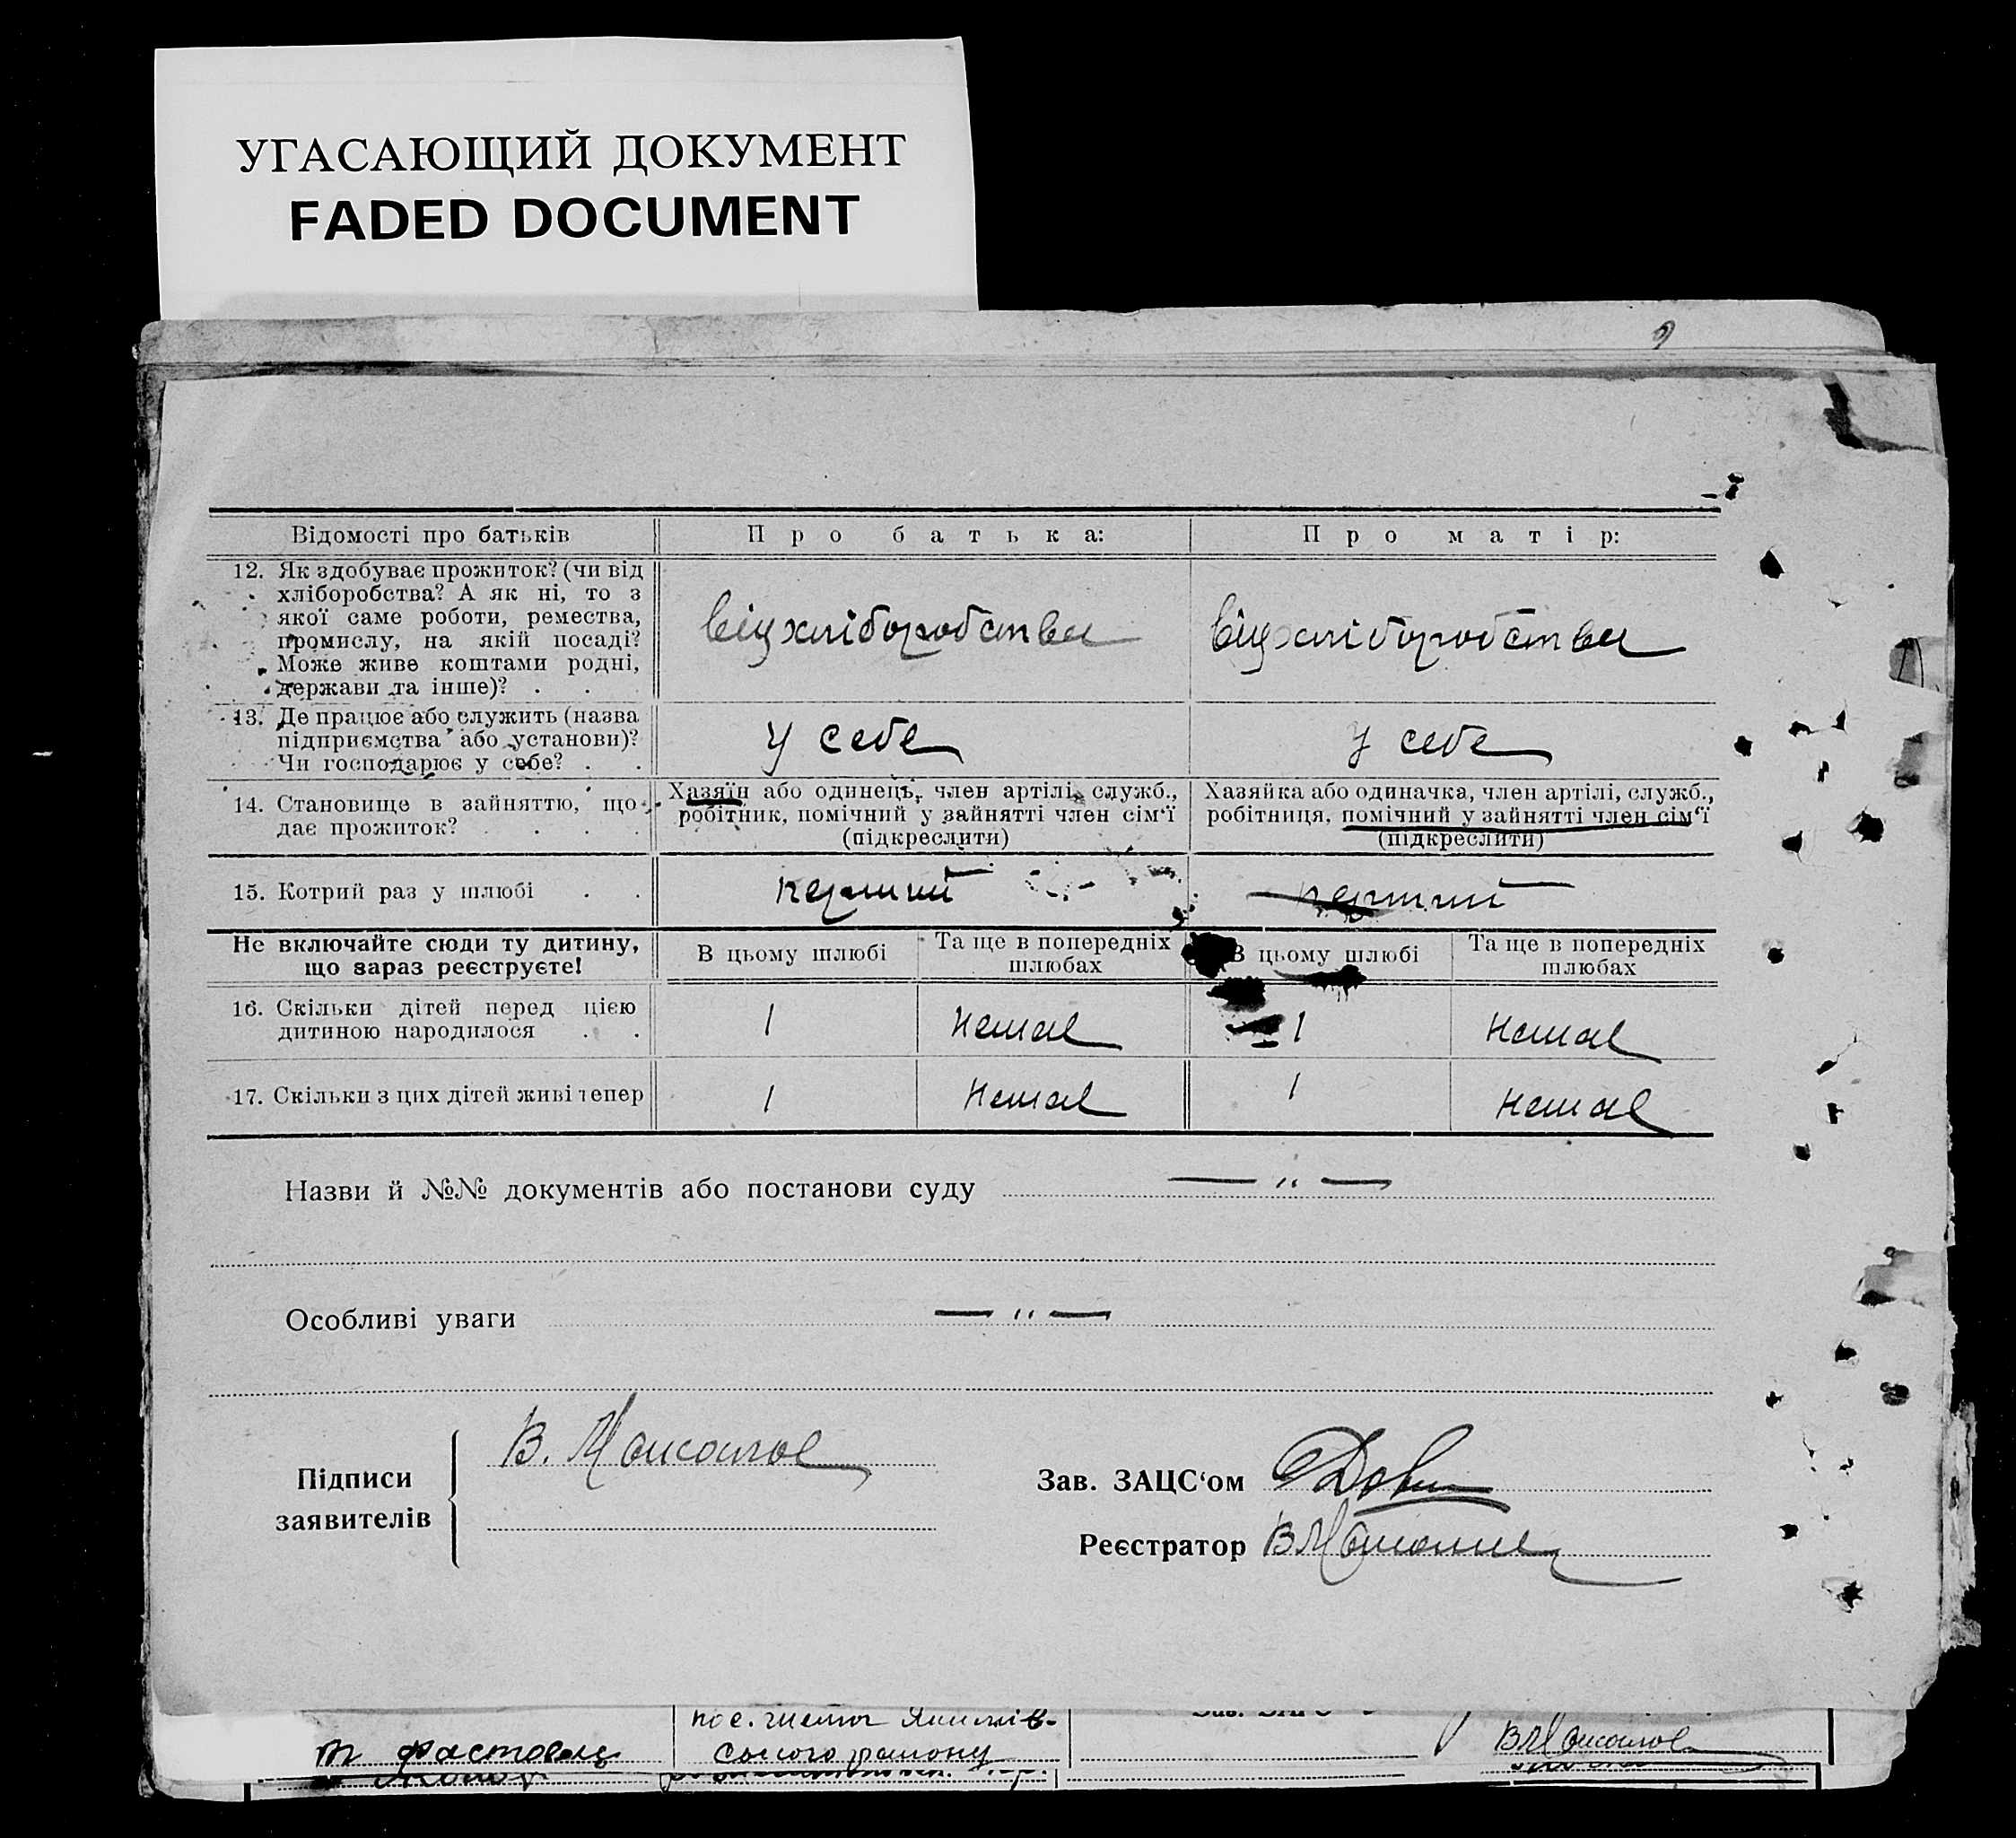 УГАСАЮЩИЙ ДОКУМЕНТ
FADED DOCUMENT
9
Відомості про батьків
Про батька:
Про матір:
12. Як здобуває прожиток? (чи від
хліборобства? А як ні, то з
якої саме роботи, ремества,
промислу, на якій посаді?
Може живе коштами родні,
держави та інше)? . .
від хліборобства
від хліборобства
13. Де працює або служить (назва
підприємства або установи)?
Чи господарює у себе? . .
у себе
у себе
14. Становище в зайняттю, що
дає прожиток? . . . .
Хазяїн або одинець, член артілі, служб.,
робітник, помічний у зайнятті член сім'ї
(підкреслити)
Хазяйка або одиначка, член артілі, служб.,
робітниця, помічний у зайнятті член сім'ї
(підкреслити)
15. Котрий раз у шлюбі . .
перший
перший
Не включайте сюди ту дитину,
що зараз реєструєте!
В цьому шлюбі
Та ще в попередніх
шлюбах
В цьому шлюбі
Та ще в попередніх
шлюбах
16. Скільки дітей перед цією
дитиною народилося . .
1
немає
1
немає
17. Скільки з цих дітей живі тепер
1
немає
1
немає
Назви й №№ документів або постанови суду — " —
Особливі уваги — " —
Підписи
заявителів
В.
Зав. ЗАЦС'ом
Реєстратор
Фастовець
району